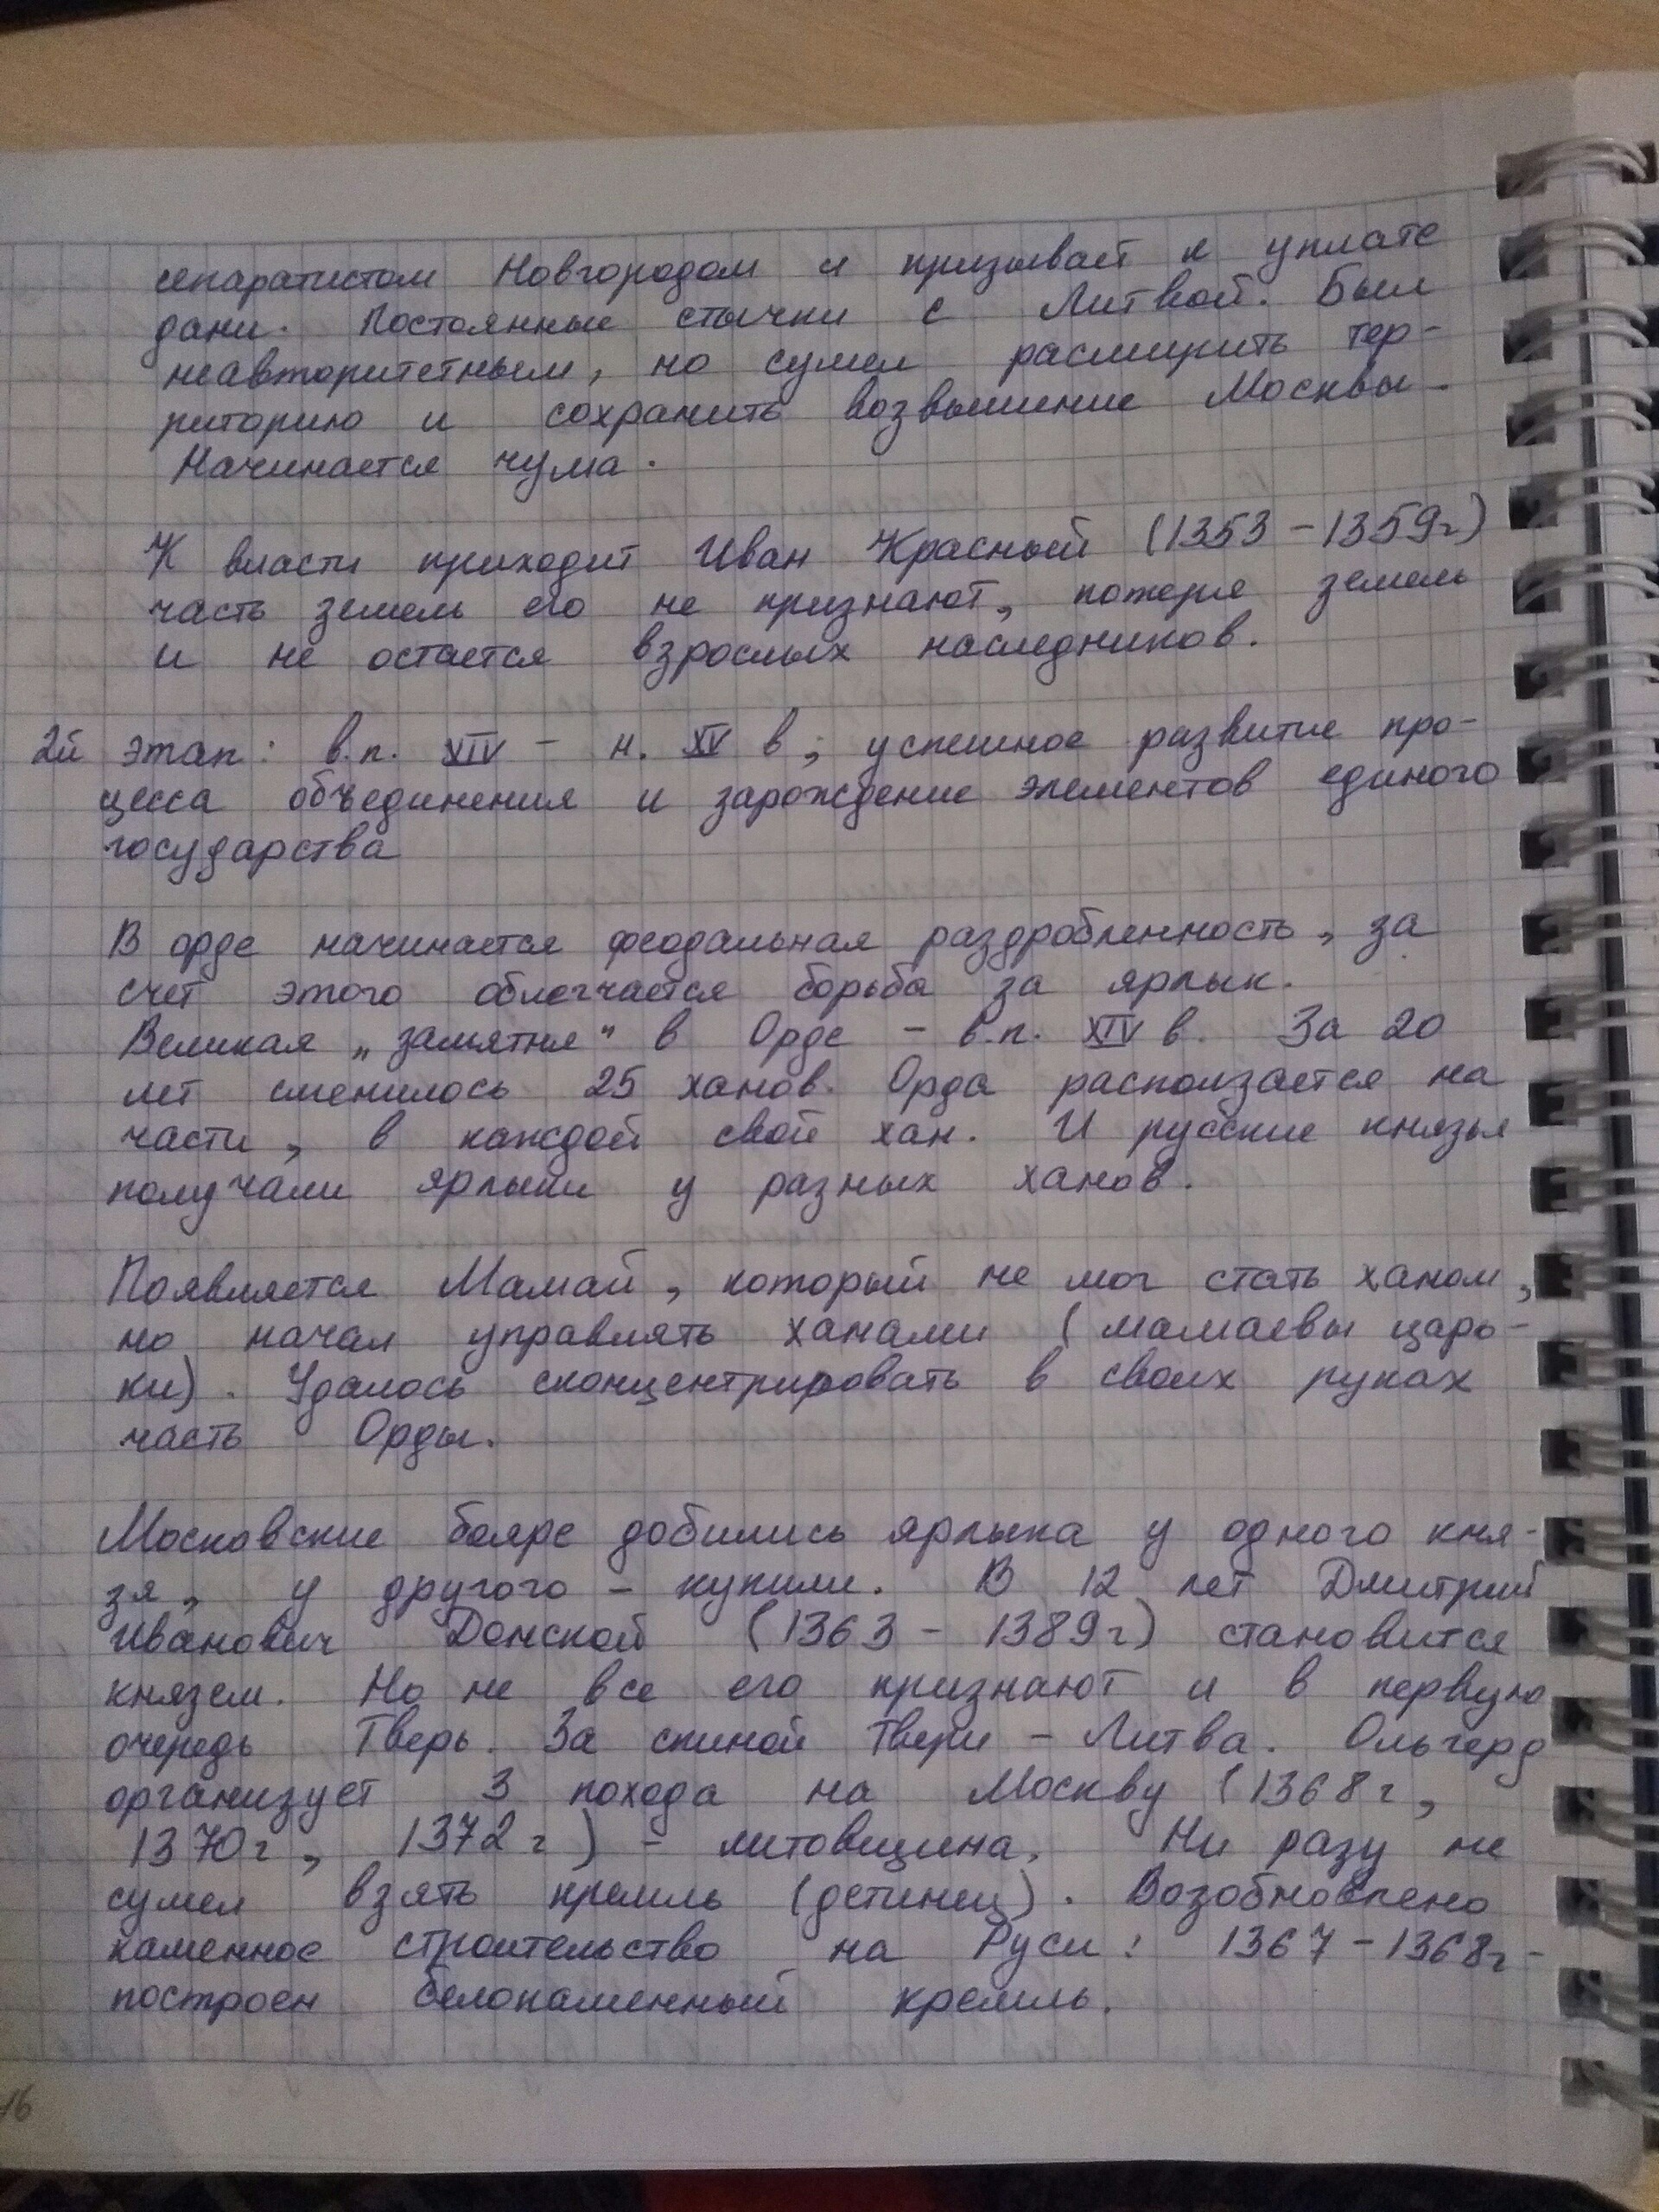 сепаратистом Новгородом и призывает к уплате
дани. Постоянные стычки с Литвой. Был
неавторитетным, но сумел расширить тер-
риторию и сохранить возвышение Москвы.
Начинается чума.
К власти приходит Иван Красный (1353 - 1359г)
часть земель его не признают, потеря земель
и не остается взрослых наследников.
2й этап: в.п. XIV - н. XV в; успешное развитие про-
цесса объединения и зарождение элементов единого
государства
В орде начинается феодальная раздробленность, за
счет этого облегчается борьба за ярлык.
Великая „замятня" в Орде - в.п. XIV в. За 20
лет сменилось 25 ханов. Орда расползается на
части, в каждой свой хан. И русские князья
получали ярлыки у разных ханов.
Появляется Мамай, который не мог стать ханом,
но начал управлять ханами (мамаевы царь-
ки). Удалось сконцентрировать в своих руках
часть Орды.
Московские бояре добились ярлыка у одного кня-
зя, у другого - купили. В 12 лет Дмитрий
Иванович Донской (1363 - 1389г) становится
князем. Но не все его признают и в первую
очередь Тверь. За спиной Твери - Литва. Ольгерд
организует 3 похода на Москву (1368г,
1370г, 1372г) - литовщина. Ни разу не
сумел взять кремль (детинец). Возобновлено
каменное строительство на Руси: 1367 - 1368г -
построен белокаменный кремль.
16